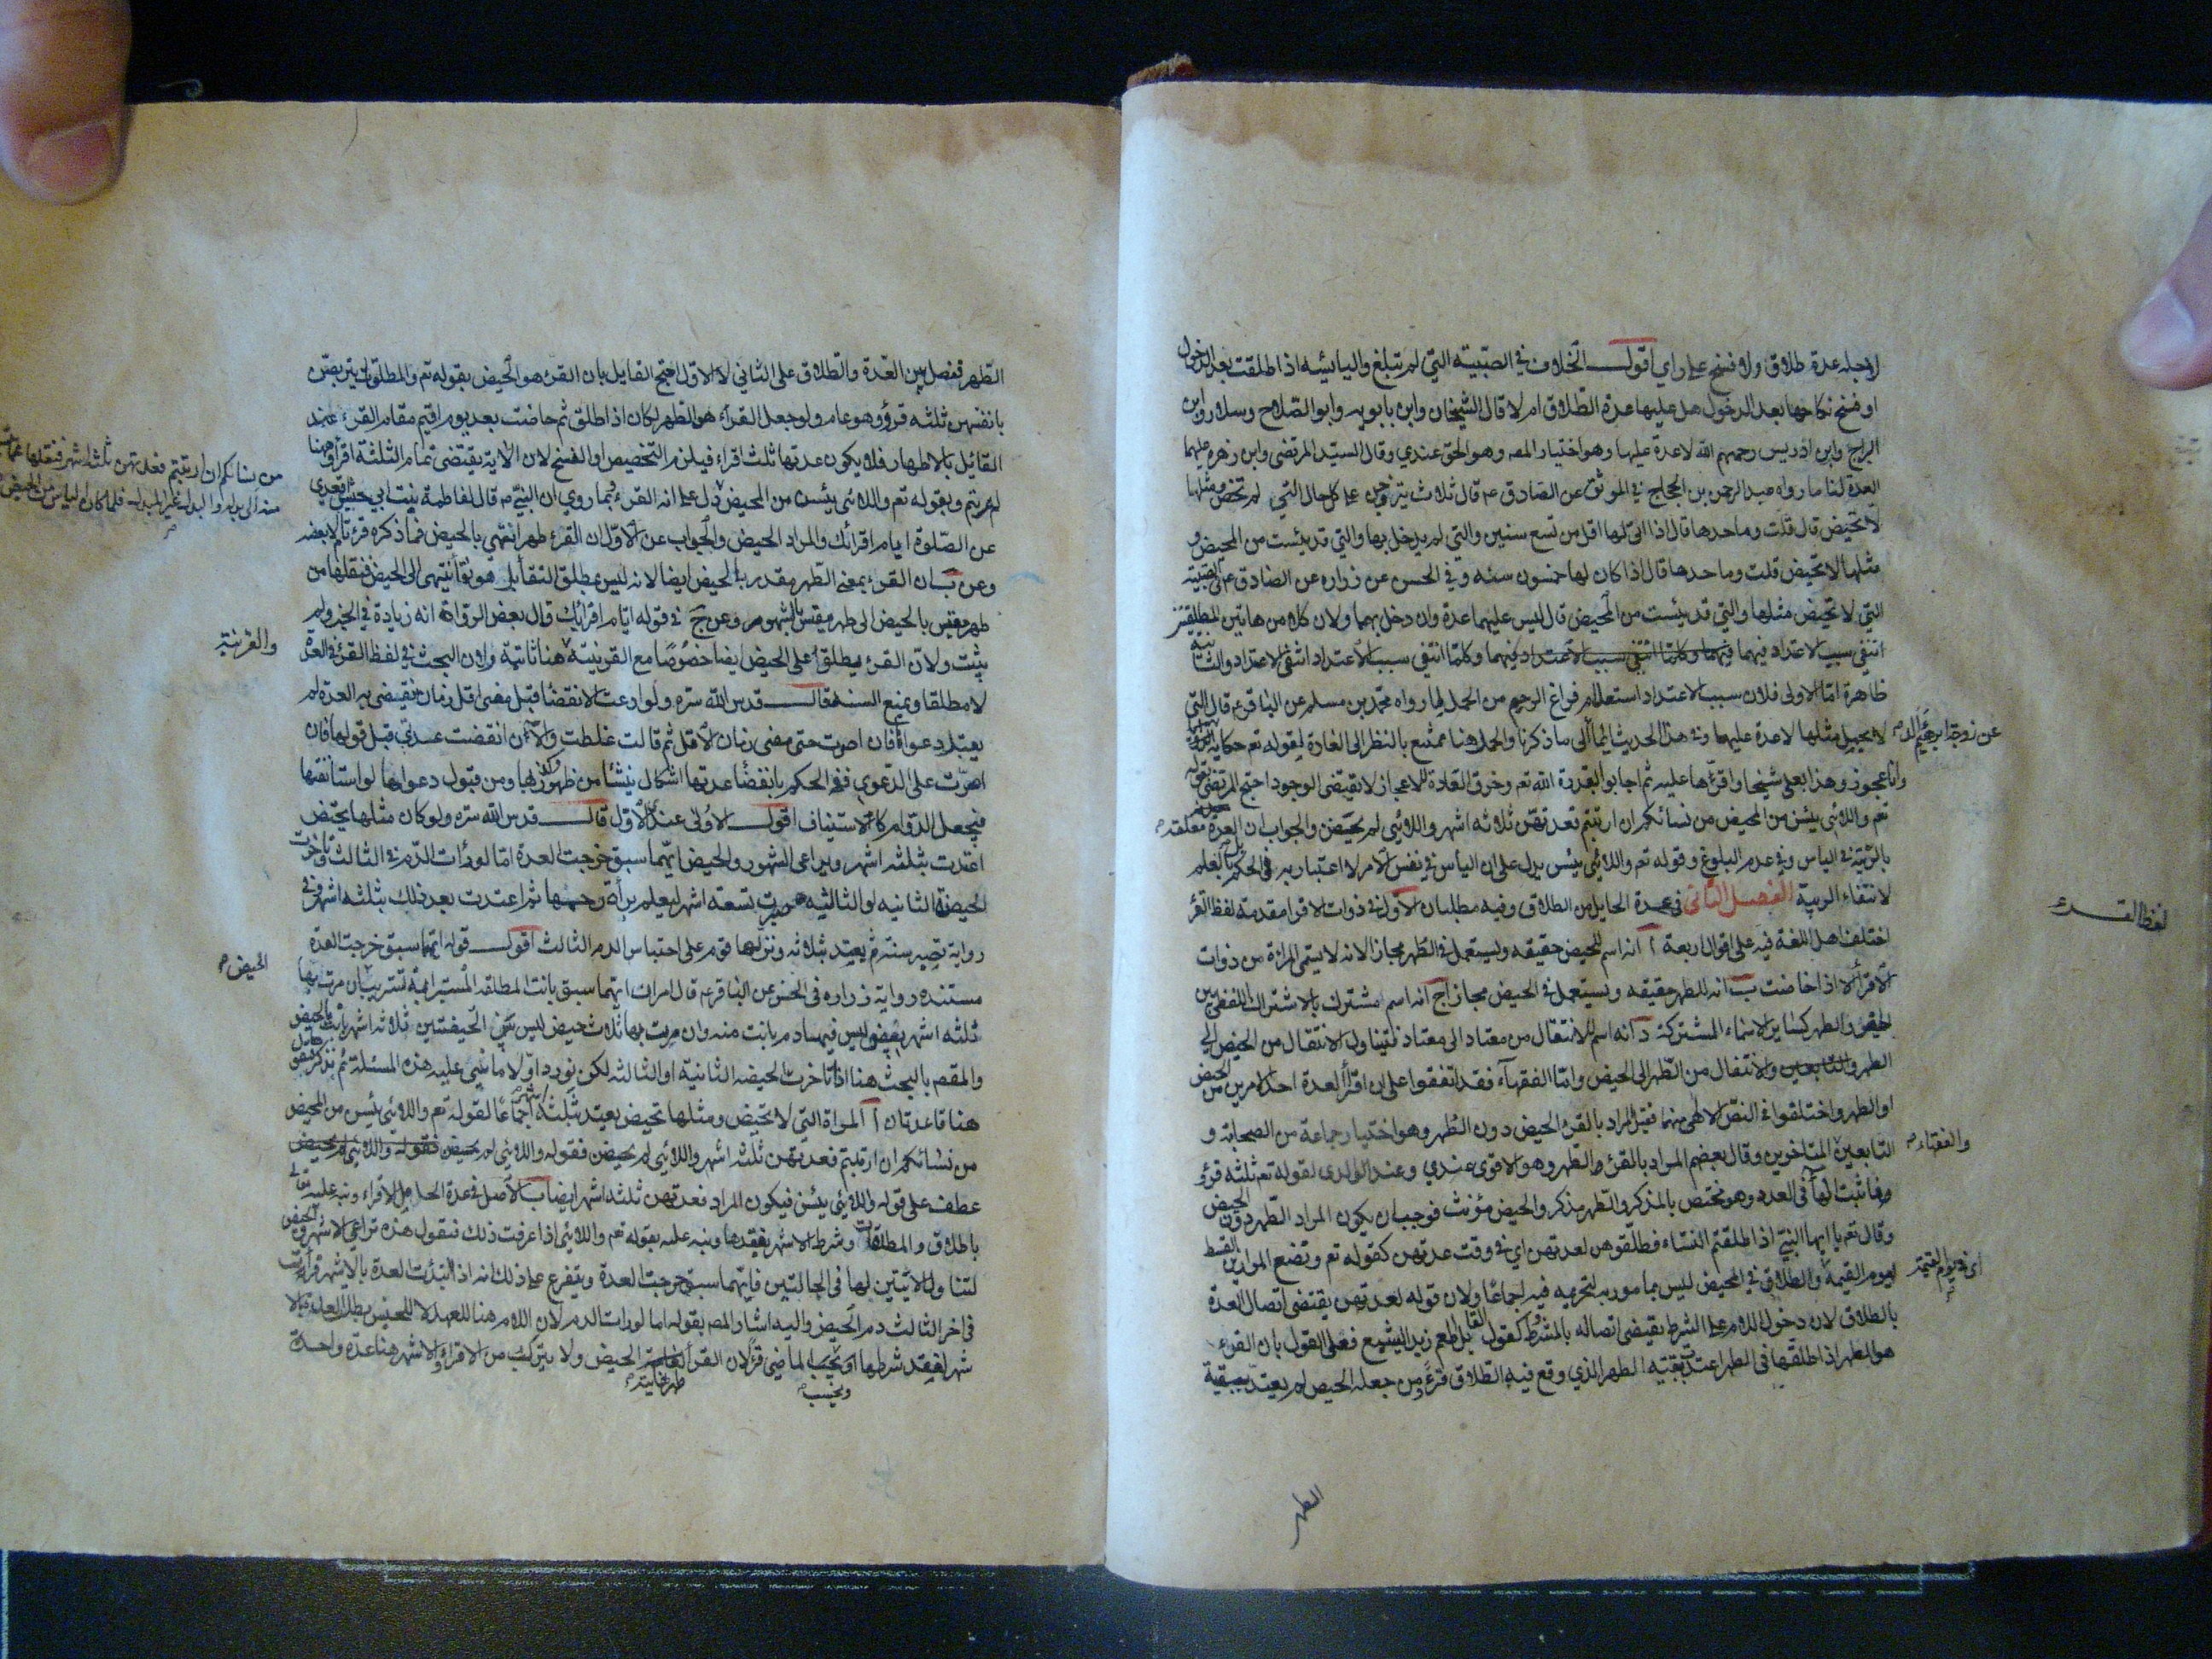 لاجله عدة طلاق ولا فسخ على راي اقول الخلاف في الصبية التي لم تبلغ واليائسه اذا طلقت بعد الدخول
او فسخ نكاحها بعد الدخول هل عليها عدة الطلاق ام لا قال الشيخان وابن بابويه وابو الصلاح وسلار وابن
البراج وابن ادريس رحمهم الله لا عدة عليها وهو اختيار المصه وهو الحق عندي وقال السيد المرتضى وابن زهره عليهما
العدة لنا ما رواه عبد الرحمن بن الحجاج في الموثق عن الصادق عم قال ثلاث يتزوجن على كل حال التي لم تحض ومثلها
لا تحيض قال قلت وما حدها قال اذا اتى لها اقل من تسع سنين والتي لم يدخل بها والتي قد يئست من المحيض و
مثلها لا تحيض قلت وما حدها قال اذا كان لها خمسون سنه وفي الحسن عن زراره عن الصادق عم في الصبية
التي لا تحيض مثلها والتي قد يئست من المحيض قال ليس عليهما عدة وان دخل بهما ولان كلا من هاتين المطلقتين
انتفى سبب الاعتداد فيهما وكلما انتفى سبب الاعتداد انتفى الاعتداد والثانية
ظاهرة اما الاولى فلان سبب الاعتداد استعلام فراغ الرحم من الحمل لما رواه محمد بن مسلم عن الباقر عم قال التي
لا يحبل مثلها لا عدة عليها وفي هذا الحديث ايماء الى ما ذكرنا والحمل هنا ممتنع بالنظر الى العادة لقوله تعم حكاية
عن زوجة ابرهيم الد
وانا عجوز وهذا بعلي شيخا واقرها عليه ثم اجابوا بقدرة الله تعم وخرق العادة للاعجاز لا يقتضى الوجود احتج المرتضى بقوله
تعم واللائي يئسن من المحيض من نسائكم ان ارتبتم فعدتهن ثلاثه اشهر واللائي لم يحضن والجواب ان العدة معلقة
بالريبة في الياس وفي عدم البلوغ وقوله تعم واللائي يئسن يدل على ان الياس في نفس الامر لا اعتبار به في الحكم بل العلم
لانتفاء الريبة الفصل الثاني في عدة الحايل من الطلاق وفيه مطلبان الاول في ذوات الاقرا مقدمة لفظ القرء
لفظ القرء
اختلف اهل اللغة فيه على اقوال اربعة ا انه اسم للحيض حقيقه ويستعمل في الطهر مجازا لانه لا يسمى المراة من ذوات
الاقرا الا اذا حاضت ب انه للطهر حقيقه ويستعمل في الحيض مجازا ج انه اسم مشترك بالاشتراك اللفظي بين
الحيض والطهر كساير الاسماء المشتركة د انه اسم للانتقال من معتاد الى معتاد فيتناول الانتقال من الحيض الى
الطهر والانتقال من الطهر الى الحيض واما الفقهاء فقد اتفقوا على ان اقراء العدة احد الامرين من الحيض
او الطهر واختلفوا في النص الالهي منهما فقيل المراد بالقرء الحيض دون الطهر وهو اختيار جماعة من الصحابة و
التابعين المتاخرين وقال بعضهم المراد بالقرء الطهر وهو الاقوى عندي وعند والدى لقوله تعم ثلثه قرؤ
والفقهاء
وقال تعم يا ايها النبي اذا طلقتم النساء فطلقوهن لعدتهن اي في وقت عدتهن كقوله تعم ونضع الموازين القسط
ليوم القيمة والطلاق في المحيض ليس بمامور به لتحريمه فيه اجماعا ولان قوله لعدتهن يقتضى اتصال العدة
اى في يوم القيمة
بالطلاق لان دخول اللام على الشرط يقتضى اتصاله بالمشروط كقول القايل اطعم زيدا ليشبع فعلى القول بان القرء
هو الطهر اذا طلقها في الطهر اعتدت بقيته الطهر الذي وقع فيه الطلاق قرء ومن جعله الحيض لم يعتد ببقية
الطهر
الطهر ففصل بين العدة والطلاق على الثاني لا الاول احتج القايل بان القرء هو الحيض بقوله تعم والمطلقات يتربصن
بانفسهن ثلثه قرؤ وهو عام ولو جعل القرء هو الطهر لكان اذا طلق ثم حاضت بعد يوم اقيم مقام القرء عند
القائل بالاطهار فلا يكون عدتها ثلث اقراء فيلزم التخصيص او الفسخ لان الاية يقتضى تمام الثلثة اقراء وههنا
لم يتم وبقوله تعم واللائي يئسن من المحيض دل على انه القرء وبما روي ان النبي ص قال لفاطمة بنت ابي حبيش اقعدي
من نسائكم ان ارتبتم فعدتهن ثلثه اشهر فنقلها
عن الصلوة ايام اقرائك والمراد الحيض والجواب عن الاول ان القرء طهر انتهى بالحيض فما ذكره قرء تام لا بعضه
وعن ب ان القرء بمعنى الطهر مقدر بالحيض ايضا لانه ليس بمطلق النقا بل هو نقا ينتهى الى الحيض فنقلها من
طهر مقيس بالحيض الى طهر مقيس بالشهور وعن ج في قوله ايام اقرائك قال بعض الرواة انه زيادة في الخبر ولم
يثبت ولان القرء يطلق على الحيض ايضا خصوصا مع القرينة هنا ثابتة ولان البحث في لفظ القرء في العدة
والقرينة
لا مطلقا وبمنع السند قال قدس الله سره ولو ادعت الانقضاء قبل مضى اقل زمان ينقضى به العدة لم
يقبل دعواها فان اصرت حتى مضى زمان الاقل ثم قالت غلطت والان انقضت عدتي قبل قولها فان
اصرت على الدعوى ففى الحكم بانقضاء عدتها اشكال ينشأ من ظهور كذبها ومن قبول دعواها لو استانفتها
فيجعل الدوام كالاستيناف اقول الاولى عندى الاول قال قدس الله سره ولو كان مثلها يحيض
اعتدت بثلثه اشهر ويراعى الشهور والحيض ايهما سبق خرجت العدة اما لو رات الدم في الثالث وتاخرت
الحيضة الثانيه او الثالثه صبرت تسعة اشهر ليعلم براة رحمها ثم اعتدت بعد ذلك بثلثه اشهر وفي
رواية تصبر سنة ثم يعتد بثلاثه ونزلها قوم على احتباس الدم الثالث اقول قوله ايهما سبق خرجت العدة
الحيض
مستنده رواية زراره في الحسن عن الباقر عم قال امران ايهما سبق بانت المطلقه المسترابة تستريب ان مرت بها
ثلثه اشهر بيض ليس فيها دم بانت منه وان مرت بها ثلاث حيض ليس بين الحيضتين ثلاثه اشهر بانت بالحيض
والمقصم بالبحث هنا اذا تاخرت الحيضه الثانية او الثالثه لكن نورد اولا ما بنى عليه هذه المسئلة ثم نذكر
هنا قاعدتان ا المراة التي لا تحيض ومثلها تحيض يعتد بثلثة اشهر اجماعا لقوله تعم واللائي يئسن من المحيض
من نسائكم ان ارتبتم فعدتهن ثلثة اشهر واللائي لم يحضن فقوله واللائي لم يحيضن
عطف على قوله واللائي يئسن فيكون المراد فعدتهن ثلثه اشهر ايضا ب الاصل في عدة الحايل الاقراء ونبه عليه تعالى
باطلاق والمطلقات وشرط الاشهر بفقدها ونبه عليه بقوله تعم واللائي اذا عرفت ذلك فنقول هذه تراعي الاشهر والحيض
لتناول الايتين لها في الحالتين فايهما سبق خرجت العدة ويتفرع على ذلك انه اذا ابتدأت العدة بالاشهر فرأت
في اخر الثالث دم الحيض واليه اشار المصه بقوله اما لو رات الدم لان اللام هنا للعهد لا للجنس بطل العدة بالا
شهر لفقد شرطها ويحتسب الماضي قرءا لان القرء طهر غايته الحيض ولا يتركب من الاقراء والاشهر هنا عدة واحدة